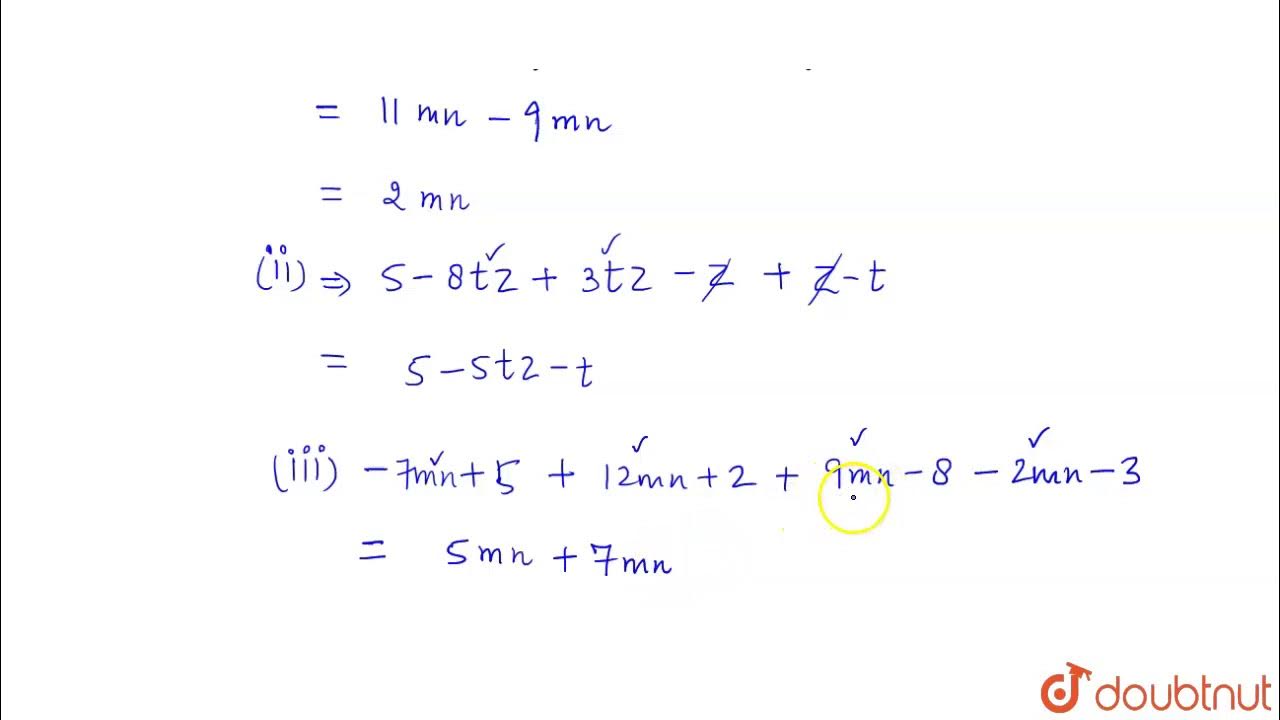 = 11 mn - 9 mn
= 2 mn
(ii) ⇒ 5 - 8tz + 3tz - z + z - t
= 5 - 5tz - t
(iii) - 7mn + 5 + 12mn + 2 + 9mn - 8 - 2mn - 3
= 5 mn + 7mn
doubtnut